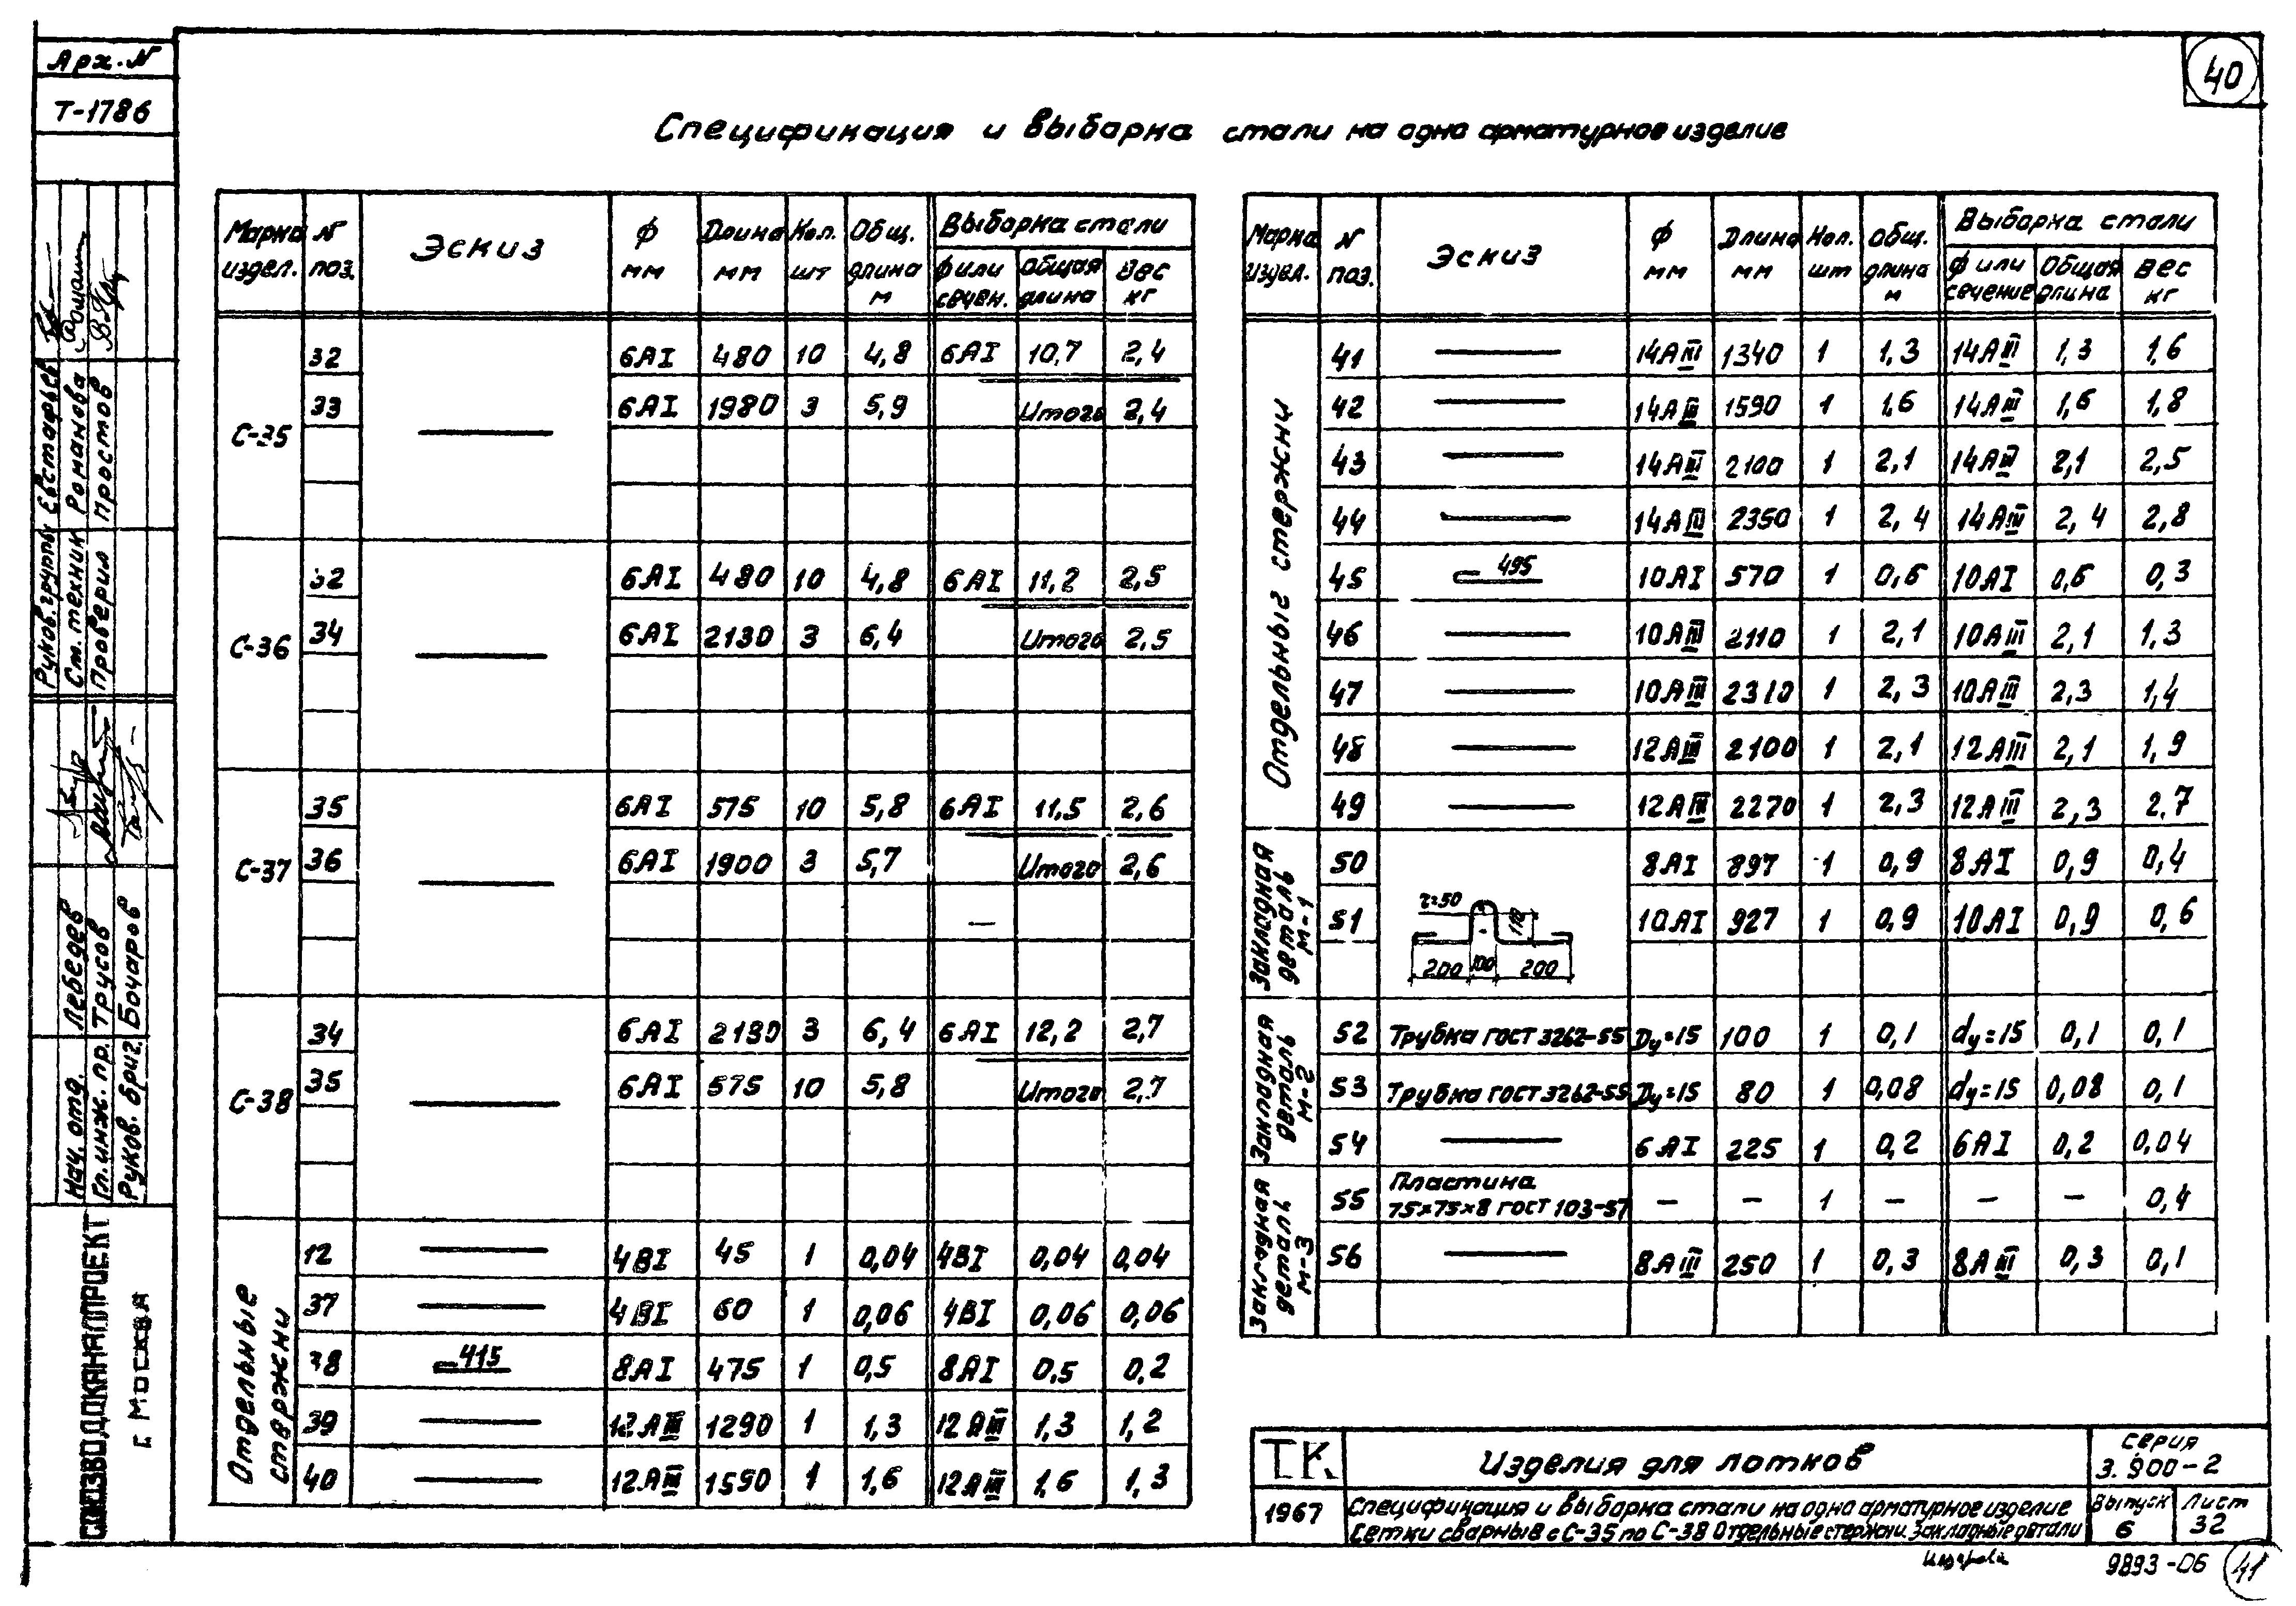 Арх. N
Т-1786
40
Спецификация и выборка стали на одно арматурное изделие
Марка издел. | N поз. | Эскиз | ф мм | Длина мм | Кол. шт | Общ. длина м | Выборка стали | ф или сечен. | Общая длина | Вес кг
С-35 | 32 | 6АI | 480 | 10 | 4,8 | 6АI | 10,7 | 2,4
33 | 6АI | 1980 | 3 | 5,9 | Итого | 2,4
С-36 | 32 | 6АI | 480 | 10 | 4,8 | 6АI | 11,2 | 2,5
34 | 6АI | 2130 | 3 | 6,4 | Итого | 2,5
С-37 | 35 | 6АI | 575 | 10 | 5,8 | 6АI | 11,5 | 2,6
36 | 6АI | 1900 | 3 | 5,7 | Итого | 2,6
С-38 | 34 | 6АI | 2130 | 3 | 6,4 | 6АI | 12,2 | 2,7
35 | 6АI | 575 | 10 | 5,8 | Итого | 2,7
Отдельные стержни
12 | 4ВI | 45 | 1 | 0,04 | 4ВI | 0,04 | 0,04
37 | 4ВI | 60 | 1 | 0,06 | 4ВI | 0,06 | 0,06
38 | 415 | 8АI | 475 | 1 | 0,5 | 8АI | 0,5 | 0,2
39 | 12АIII | 1290 | 1 | 1,3 | 12АIII | 1,3 | 1,2
40 | 12АIII | 1590 | 1 | 1,6 | 12АIII | 1,6 | 1,3
Марка издел. | N поз. | Эскиз | ф мм | Длина мм | Кол. шт | Общ. длина м | Выборка стали | ф или сечение | Общая длина | Вес кг
Отдельные стержни
41 | 14АIII | 1340 | 1 | 1,3 | 14АIII | 1,3 | 1,6
42 | 14АIII | 1590 | 1 | 1,6 | 14АIII | 1,6 | 1,8
43 | 14АIII | 2100 | 1 | 2,1 | 14АIII | 2,1 | 2,5
44 | 14АIII | 2350 | 1 | 2,4 | 14АIII | 2,4 | 2,8
45 | 495 | 10АI | 570 | 1 | 0,6 | 10АI | 0,6 | 0,3
46 | 10АIII | 2110 | 1 | 2,1 | 10АIII | 2,1 | 1,3
47 | 10АIII | 2310 | 1 | 2,3 | 10АIII | 2,3 | 1,4
48 | 12АIII | 2100 | 1 | 2,1 | 12АIII | 2,1 | 1,9
49 | 12АIII | 2270 | 1 | 2,3 | 12АIII | 2,3 | 2,7
Закладная деталь М-1
50 | 8АI | 897 | 1 | 0,9 | 8АI | 0,9 | 0,4
51 | 10АI | 927 | 1 | 0,9 | 10АI | 0,9 | 0,6
r=50 110
200 100 200
Закладная деталь М-2
52 | Трубка ГОСТ 3262-55 | Dу=15 | 100 | 1 | 0,1 | dу=15 | 0,1 | 0,1
53 | Трубка ГОСТ 3262-55 | Dу=15 | 80 | 1 | 0,08 | dу=15 | 0,08 | 0,1
54 | 6АI | 225 | 1 | 0,2 | 6АI | 0,2 | 0,04
Закладная деталь М-3
55 | Пластина 75×75×8 ГОСТ 103-57 | – | – | 1 | – | – | – | 0,4
56 | 8АIII | 250 | 1 | 0,3 | 8АIII | 0,3 | 0,1
Руков. группы Евстафьев
Ст. техник Романова
Проверил Простов
Нач. отд. Лебедев
Гл. инж. пр. Трусов
Руков. бриг. Бочаров
СОЮЗВОДОКАНАЛПРОЕКТ
г. МОСКВА
ТК
1967
Изделия для лотков
Спецификация и выборка стали на одно арматурное изделие
Сетки сварные с С-35 по С-38 Отдельные стержни. Закладные детали
серия
3.900-2
Выпуск
6
Лист
32
9893-06
41